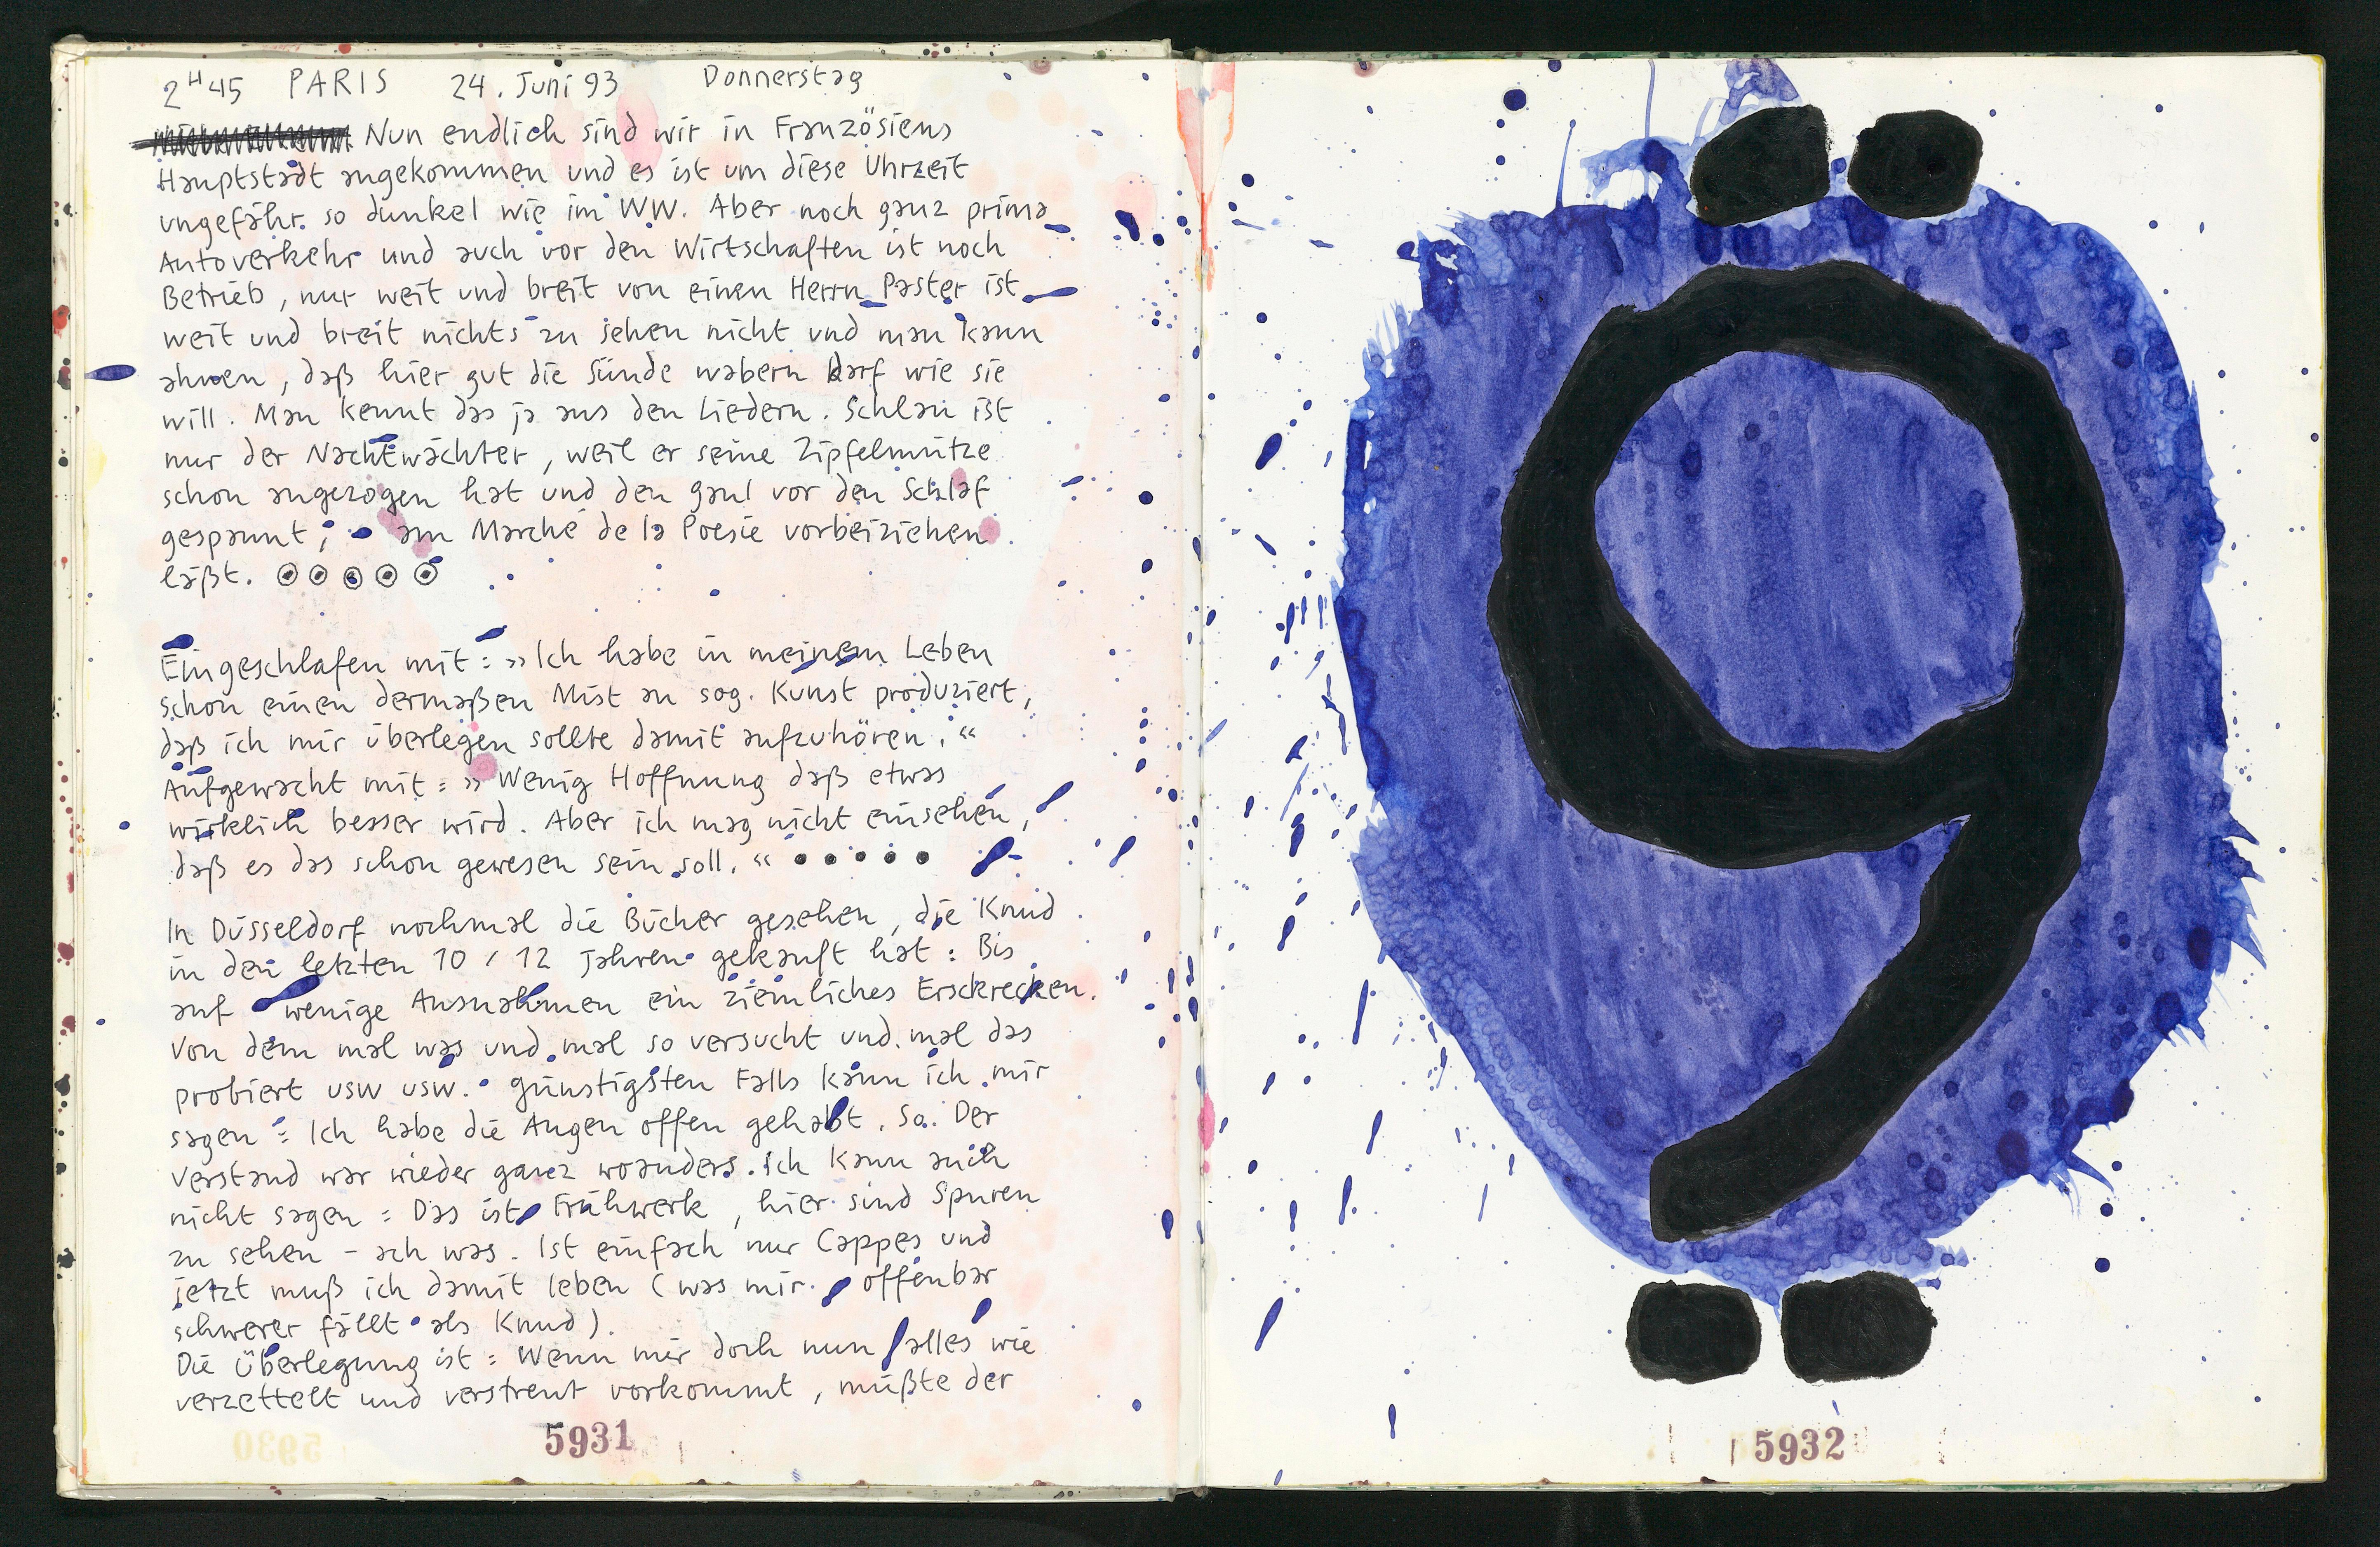 2H45 PARIS 24. Juni 93 Donnerstag
Nun endlich sind wir in Französiens
Hauptstadt angekommen und es ist um diese Uhrzeit
ungefähr so dunkel wie im WW. Aber noch ganz prima
Autoverkehr und auch vor den Wirtschaften ist noch
Betrieb, nur weit und breit von einen Herrn Paster ist
weit und breit nichts zu sehen nicht und man kann
ahnen, daß hier gut die Sünde wabern darf wie sie
will. Man kennt das ja aus den Liedern. Schlau ist
nur der Nachtwächter, weil er seine Zipfelmütze
schon angezogen hat und den Gaul vor den Schlaf
gespannt; am Marché de la Poesie vorbeiziehen
läßt.
Eingeschlafen mit: »Ich habe in meinem Leben
schon einen dermaßen Mist an sog. Kunst produziert,
daß ich mir überlegen sollte damit aufzuhören.«
Aufgewacht mit: »Wenig Hoffnung daß etwas
wirklich besser wird. Aber ich mag nicht einsehen,
daß es das schon gewesen sein soll.« • • • • •
In Düsseldorf nochmal die Bücher gesehen, die Knud
in den letzten 10 / 12 Jahren gekauft hat: Bis
auf wenige Ausnahmen ein ziemliches Erschrecken.
Von dem mal was und mal so versucht und mal das
probiert usw usw. günstigsten Falls kann ich mir
sagen: Ich habe die Augen offen gehabt. So. Der
Verstand war wieder ganz woanders. Ich kann auch
nicht sagen: Das ist Frühwerk, hier sind Spuren
zu sehen – ach was. Ist einfach nur Cappes und
jetzt muß ich damit leben (was mir offenbar
schwerer fällt als Knud).
Die Überlegung ist: Wenn mir doch nun alles wie
verzettelt und verstreut vorkommt, müßte der
5931
9
5932